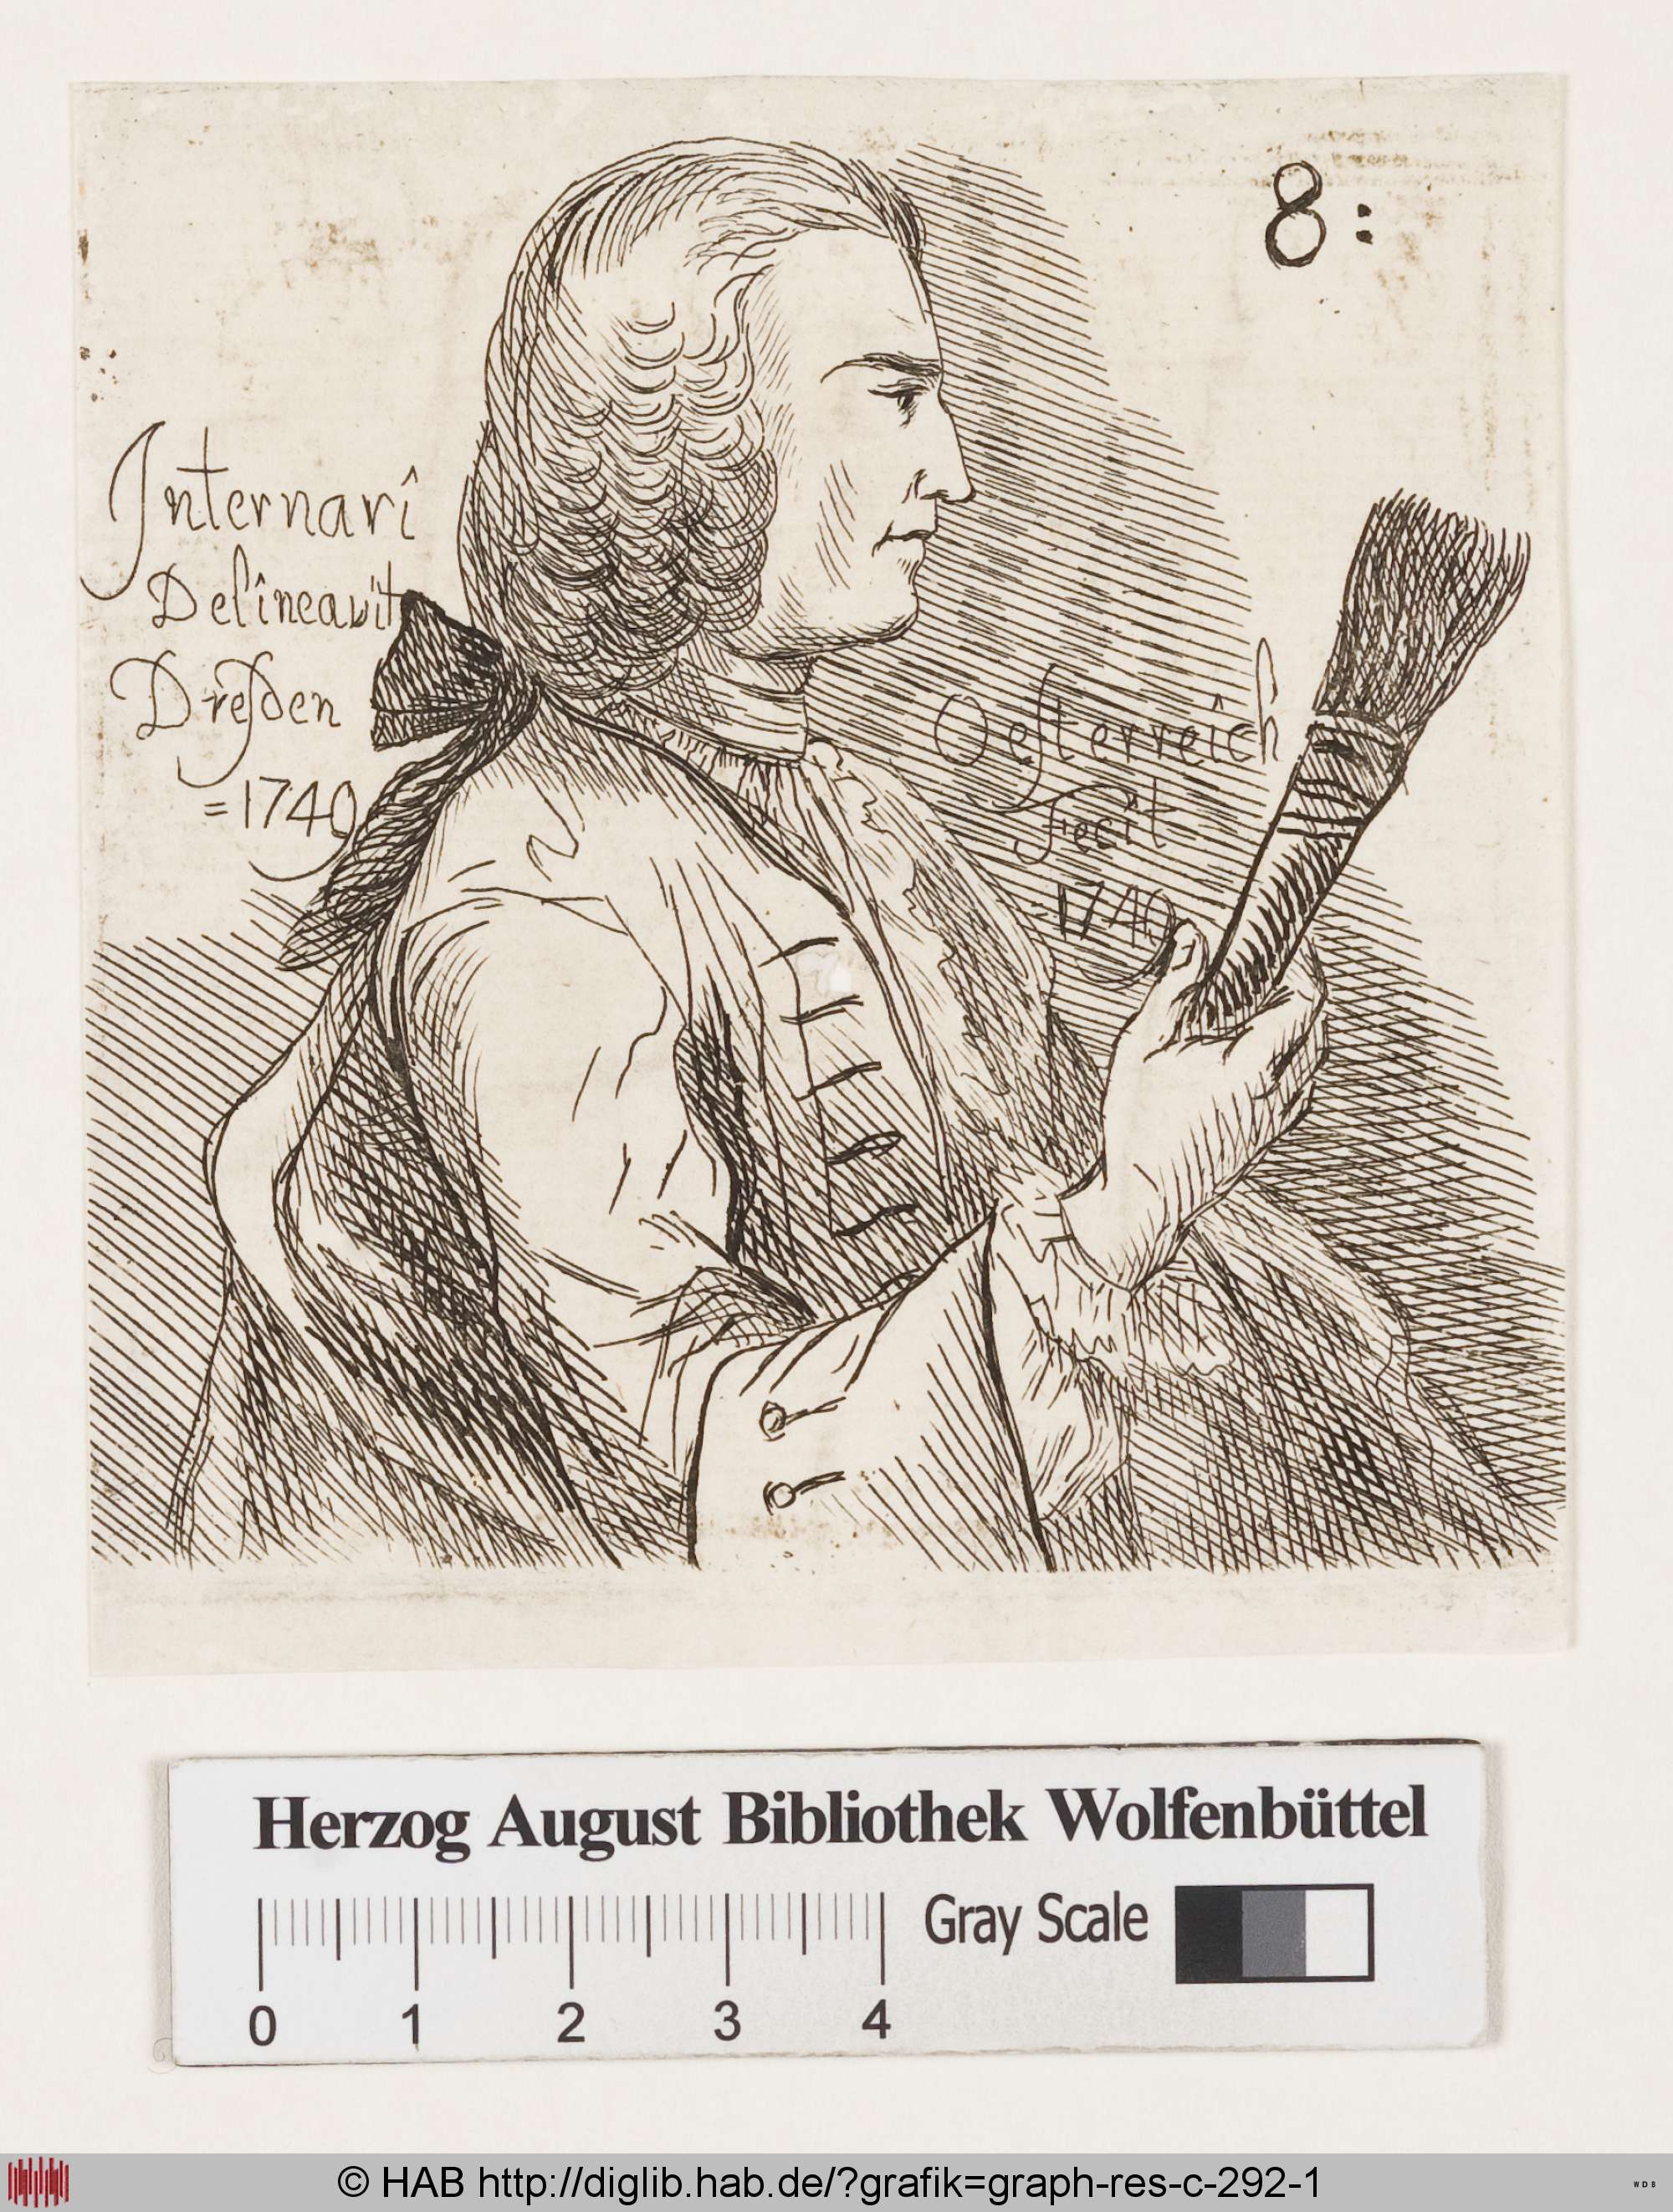 8:
Internari
Delineavit
Dresden
=1740
Oesterreich
Fecit
1740
Herzog August Bibliothek Wolfenbüttel
Gray Scale
0 1 2 3 4
© HAB http://diglib.hab.de/?grafik=graph-res-c-292-1
WDB